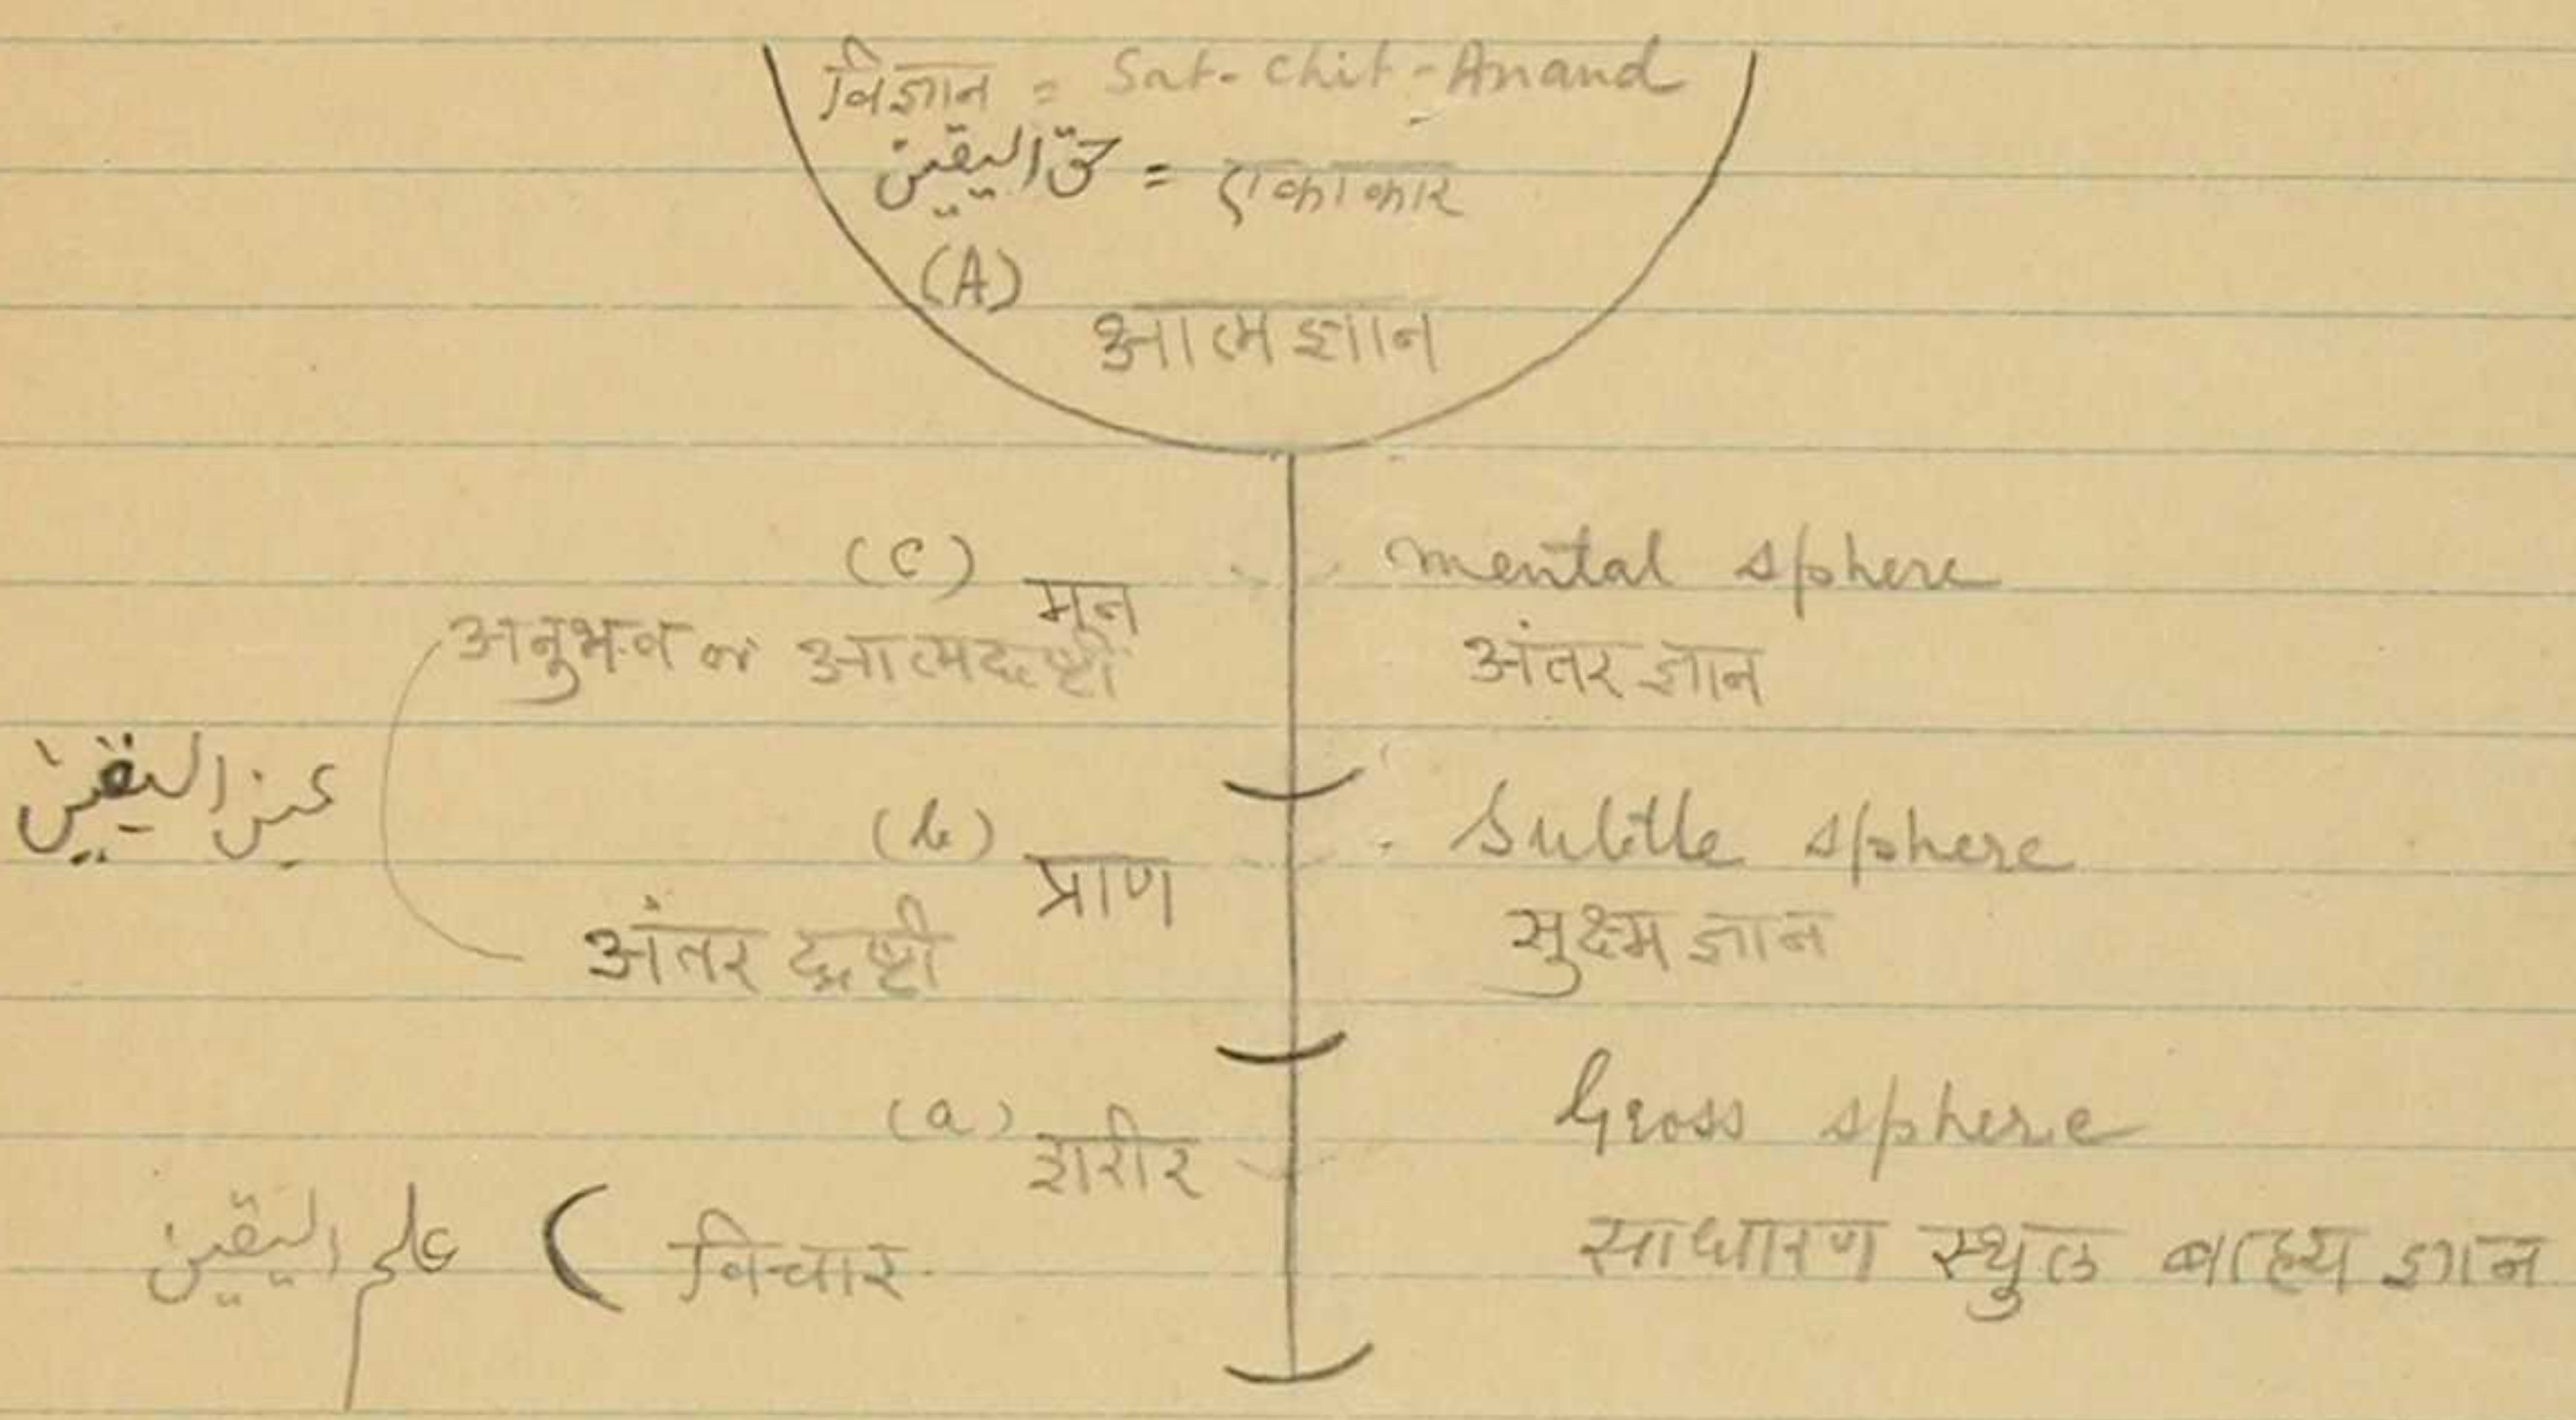 विज्ञान = Sat-Chit-Anand
حق الیقین = एकाकार
(A)
आत्मज्ञान
(c) मन mental sphere
अनुभव or आत्मदृष्टी अंतर ज्ञान
عین الیقین
(b) प्राण Subtle sphere
अंतर दृष्टी सुक्ष्म ज्ञान
(a) शरीर Gross sphere
علم الیقین ( विचार साधारण स्थुल बाह्य ज्ञान